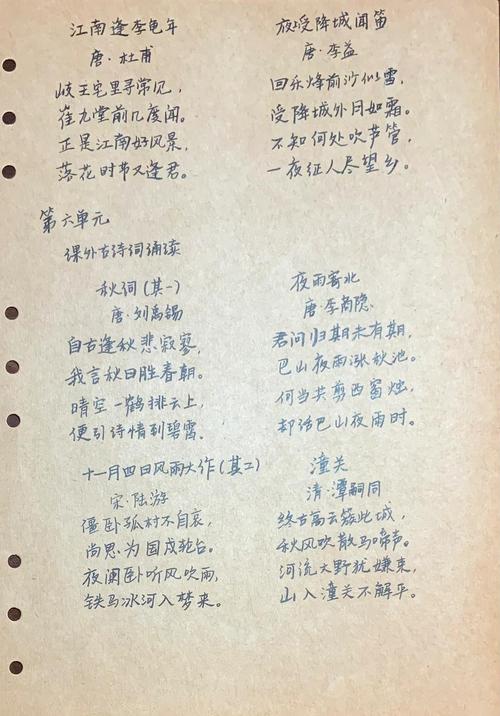 江南逢李龟年
唐·杜甫
岐王宅里寻常见，
崔九堂前几度闻。
正是江南好风景，
落花时节又逢君。
夜上受降城闻笛
唐·李益
回乐烽前沙似雪，
受降城外月如霜。
不知何处吹芦管，
一夜征人尽望乡。
第六单元
课外古诗词诵读
秋词(其一)
唐·刘禹锡
自古逢秋悲寂寥，
我言秋日胜春朝。
晴空一鹤排云上，
便引诗情到碧霄。
夜雨寄北
唐·李商隐
君问归期未有期，
巴山夜雨涨秋池。
何当共剪西窗烛，
却话巴山夜雨时。
十一月四日风雨大作(其二)
宋·陆游
僵卧孤村不自哀，
尚思为国戍轮台。
夜阑卧听风吹雨，
铁马冰河入梦来。
潼关
清·谭嗣同
终古高云簇此城，
秋风吹散马啼声。
河流大野犹嫌束，
山入潼关不解平。